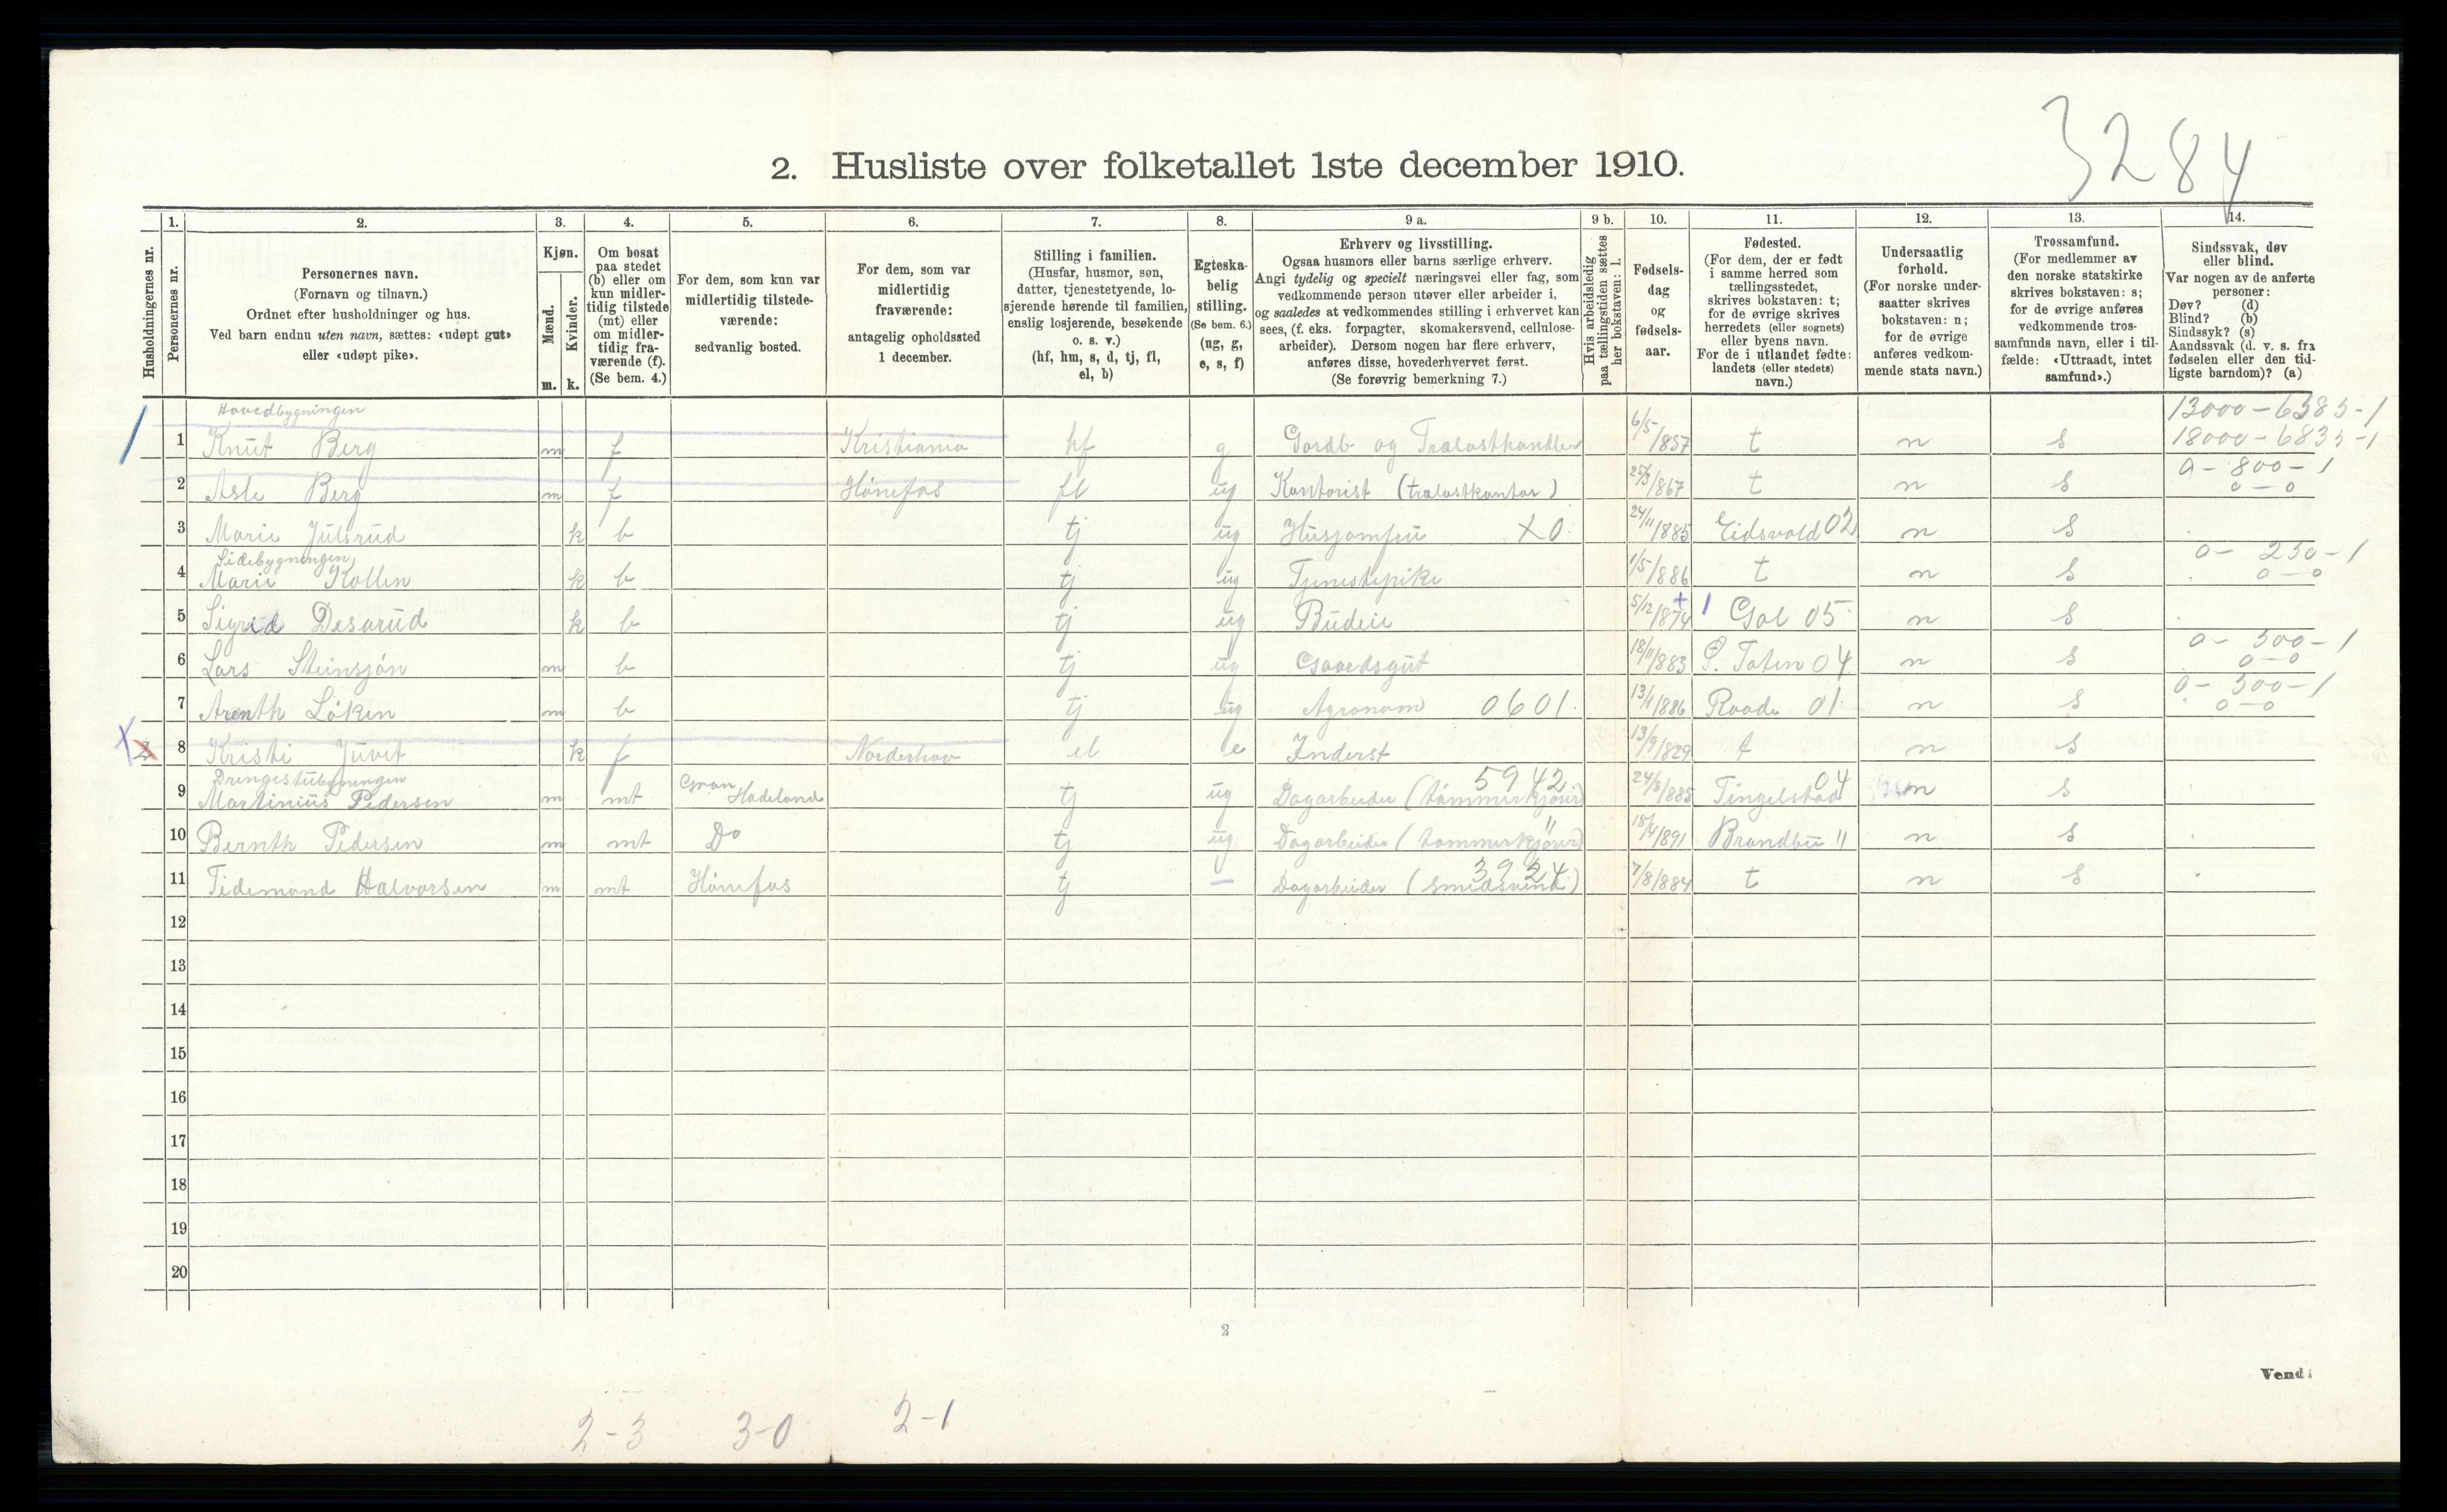 3284
2. Husliste over folketallet 1ste december 1910.
1. 2. 3. 4. 5. 6. 7. 8. 9 a. 9 b. 10. 11. 12. 13. 14.
Husholdningernes nr.
Personernes nr.
Personernes navn.
(Fornavn og tilnavn.)
Ordnet efter husholdninger og hus.
Ved barn endnu uten navn, sættes: «udøpt gut»
eller «udøpt pike».
Kjøn.
Mænd.
Kvinder.
m. k.
Om bosat
paa stedet
(b) eller om
kun midler-
tidig tilstede
(mt) eller
om midler-
tidig fra-
værende (f).
(Se bem. 4.)
For dem, som kun var
midlertidig tilstede-
værende:
sedvanlig bosted.
For dem, som var
midlertidig
fraværende:
antagelig opholdssted
1 december.
Stilling i familien.
(Husfar, husmor, søn,
datter, tjenestetyende, lo-
sjerende hørende til familien,
enslig losjerende, besøkende
o. s. v.)
(hf, hm, s, d, tj, fl,
el, b)
Egteska-
belig
stilling.
(Se bem. 6.)
(ug, g,
e, s, f)
Erhverv og livsstilling.
Ogsaa husmors eller barns særlige erhverv.
Angi tydelig og specielt næringsvei eller fag, som
vedkommende person utøver eller arbeider i,
og saaledes at vedkommendes stilling i erhvervet kan
sees, (f. eks. forpagter, skomakersvend, cellulose-
arbeider). Dersom nogen har flere erhverv,
anføres disse, hovederhvervet først.
(Se forøvrig bemerkning 7.)
Hvis arbeidsledig
paa tællingstiden sættes
her bokstaven: l.
Fødsels-
dag
og
fødsels-
aar.
Fødested.
(For dem, der er født
i samme herred som
tællingsstedet,
skrives bokstaven: t;
for de øvrige skrives
herredets (eller sognets)
eller byens navn.
For de i utlandet fødte:
landets (eller stedets)
navn.)
Undersaatlig
forhold.
(For norske under-
saatter skrives
bokstaven: n;
for de øvrige
anføres vedkom-
mende stats navn.)
Trossamfund.
(For medlemmer av
den norske statskirke
skrives bokstaven: s;
for de øvrige anføres
vedkommende tros-
samfunds navn, eller i til-
fælde: «Uttraadt, intet
samfund».)
Sindssvak, døv
eller blind.
Var nogen av de anførte
personer:
Døv? (d)
Blind? (b)
Sindssyk? (s)
Aandssvak (d. v. s. fra
fødselen eller den tid-
ligste barndom)? (a)
Hovedbygningen 13000-6385-1
1 Knut Berg m f Kristiania hf g Gardb og Trælasthandler 6/5/857 t n s 18000-6835-1
0-800-1
2 Asle Berg m f Hönefos fl ug Kontorist (trælastkontor) 25/3/867 t n s 0-0
3 Marie Julsrud k b tj ug Husjomfru X0 24/11/885 Eidsvold 02 n s
Sidebygningen 0-250-1
4 Marie Kollen k b tj ug Tjenestepike 1/5/886 t n s 0-0
5 Sigrid Desarud k b tj ug Budeie 5/12/874 Gol 05 n s
0-300-1
6 Lars Steinsjön m b tj ug Gaardsgut 18/11/883 Ö. Toten 04 n s 0-0
0-300-1
7 Arenth Löken m b tj ug Agronom 0601 13/1/886 Raade 01 n s 0-0
2 8 Kristi Juvet k f Norderhov el e Inderst 13/9/829 t n s
Drengestubygningen
9 Martinius Pedersen m mt Gran Hadeland tj ug Dagarbeider (tömmerkjörer) 5942 24/3/885 Tingelstad 04 n s
10 Bernth Pedersen m mt Do tj ug Dagarbeider (tömmerkjörer) " 15/4/891 Brandbu " n s
11 Tidemand Halvorsen m mt Hönefos tj — Dagarbeider (smedsvend) 3924 7/8/884 t n s
12
13
14
15
16
17
18
19
20
2
Vend!
2-3 3-0 2-1